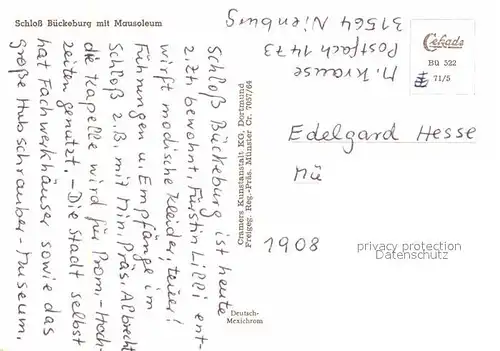 Schloß Bückeburg mit Mausoleum
Schloß Bückeburg ist heute
z.Zt. bewohnt, Fürstin Lilli ent-
wirft modische Kleider, teuer!
Führungen u. Empfänge im
Schloß z.B. mit Min.Präs. Albrecht
die Kapelle wird für Promi-Hoch-
zeiten genutzt. - Die Stadt selbst
hat Fachwerkhäuser sowie das
große Hubschrauber-Museum.
Cramers Kunstanstalt KG, Dortmund
Freigeg. Reg.-Präs. Münster Cr. 7057/64
Deutsch-
Mexichrom
M. Krause
Postfach 1473
31564 Nienburg
Cekade
BÜ 522
71/5
Edelgard Hesse
Mü
1908
privacy protection
Datenschutz